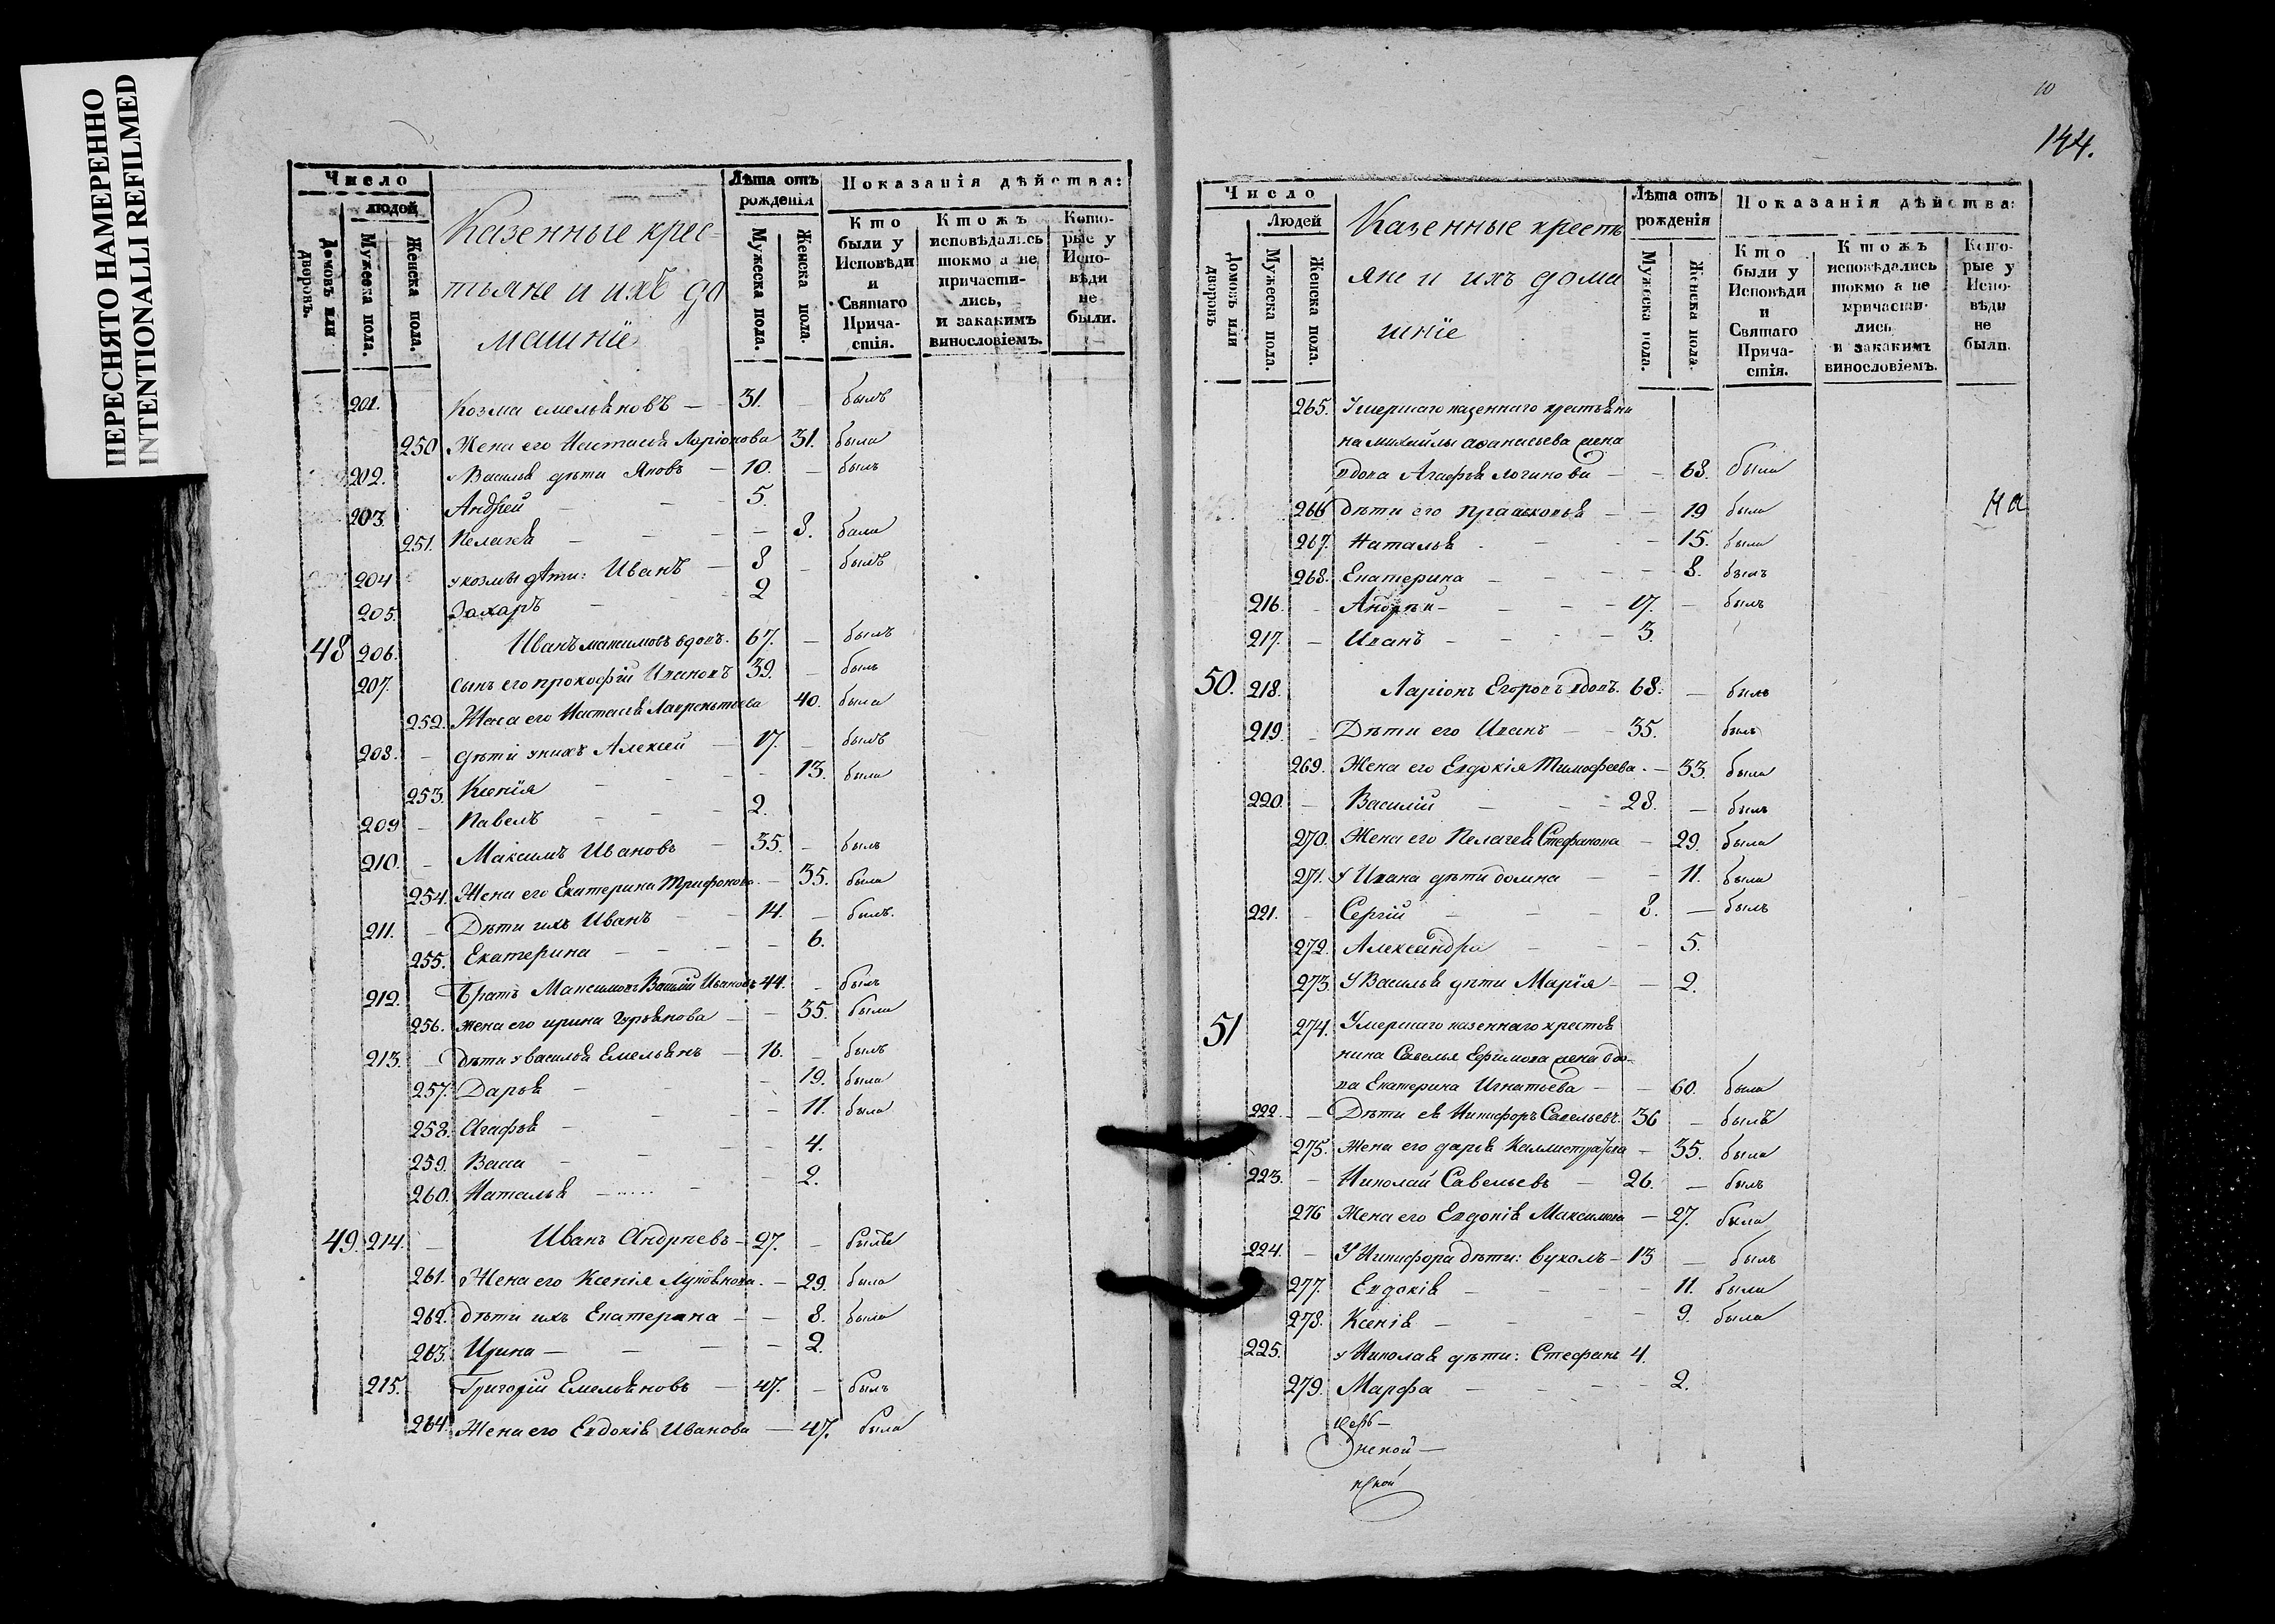 ПЕРЕСНЯТО НАМЕРЕННО
INTENTIONALLI REFILMED
Число
людой
Домовъ или дворовъ.
Мужеска пола.
Женска пола.
Казенные крес-
тьяне и ихъ до
машніе
Лѣта отъ рожденія
Мужеска пола.
Женска пола.
Показанія дѣйства:
Кто были у Исповѣди и Святаго Прича-стія.
Ктожъ исповѣдались токмо а не причасти-лись, и закакимъ винословіемъ.
Кото-рые у Испо-вѣди не были.
201. Козма емельяновъ — 31. — былъ
250 Жена его Настасья Ларіонова 31. была
202. у Василья дѣти Яковъ — 10. — былъ
203. Андрей — — 5.
251. Пелагѣя — — — 8. была
204 у козмы дѣти: Иванъ — 8 — былъ
205. Захаръ — — 2
48 206. Иванъ максимовъ вдовъ. 67. — былъ
207. сынъ его прокофій Ивановъ 39. — былъ
252. Жена его Настасья Лаврентьева 40. была
208. — дѣти у нихъ Алексѣй — 17. — былъ
253. Ксенія — — — 13. была
209 — Павелъ — — — 2.
210. — Максимъ Ивановъ — 35. — былъ
254. Жена его Екатерина Трифонова — 35. была
211. — Дѣти ихъ Иванъ — — 14. — былъ.
255. Екатерина — — — — 6.
212. — Братъ Максимовъ Василій Ивановъ 44. — былъ
256. жена его ирина Гурьянова — — 35. была
213. — дѣти у василья Емельянъ — 16. — былъ
257. Дарья — — 19. была
258. Агафья — — — — 11. была
259. Васса — — — — 4.
260. Наталья — — — 2.
49. 214. — Иванъ Андреевъ — 27. — былъ
261. Жена его Ксенія Лукьянова. — 29. была
262. дѣти ихъ Екатерина — — 8. была
263. Ирина — — — — 2.
215. Григорій Емельяновъ — 47. — былъ
264. Жена его Евдокія Иванова — 47. была
10
144.
Число
Людей
Домовъ или дворовъ
Мужеска пола.
Женска пола.
Казенные кресть
яне и ихъ дома
шніе
Лѣта отъ рожденія
Мужеска пола.
Женска пола
Показанія дѣйства:
Кто были у Исповѣди и Святаго Прича-стія.
Ктожъ исповѣдались токмо а не причасти-лись и закакимъ винословіемъ.
Кото-рые у Испо-вѣди не были.
265. Умершаго казеннаго крестьяни
на михайлы аѳанасьева жена
вдова Агафья логинова — — 68. была
266 дѣти его прасковья — — 19 была
На
267. Наталья — — 15. была
268. Екатерина — — — 8. былъ
216. — Андрѣй — — — 17. — былъ
217. — Иванъ — — — — 3.
50. 218. Ларіонъ Егоровъ вдовъ. 68. — былъ
219. — Дѣти его Иванъ — — 35. былъ
269. Жена его Евдокія Тимофеева. — 33. была
220. — Василій — — — 28. — былъ
270. Жена его Пелагея Стефанова — 29. была
271. У Ивана дѣти домна — — 11. была
221. — Сергій — — — 8. — былъ
272. Александра — — — 5.
273. У Василья дѣти Марія — — 2.
51 274. Умершаго казеннаго крестья
нина Савелья Ефимова жена вдо-
ва Екатерина Игнатьева — — 60. была
222. — — Дѣти ея Никифоръ Савельевъ. 36 — былъ
275. Жена его дарья Каллистратова — 35. была
223. — Николай Савельевъ — 26. — былъ
276 Жена его Евдокія Максимова — 27. была
224. — У Никифора дѣти: Вуколъ — 13 — былъ
277. Евдокія — — — — 11. была
278. Ксенія — — — — 9. была
225. у Николая дѣти: Стефанъ 4.
279. Марфа — — — — 2.